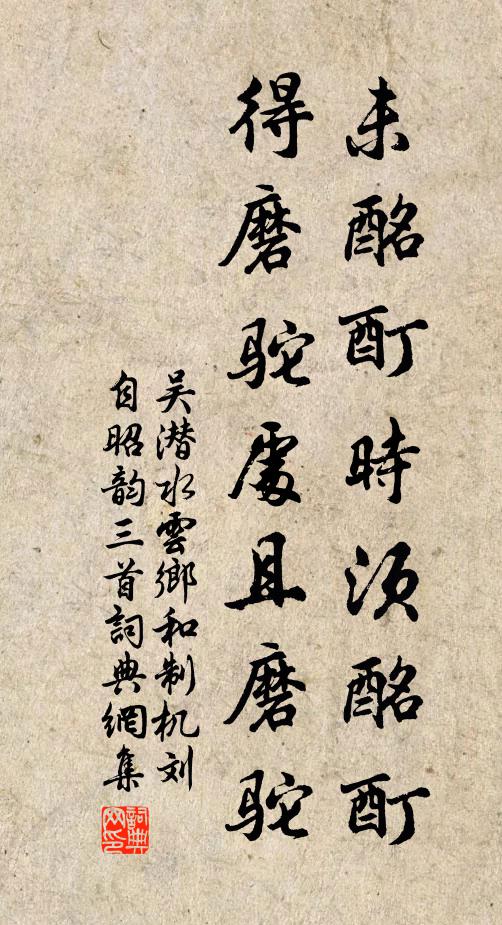 未酩酊時須酩酊
得磨駝處且磨駝
吴潜水雲鄉和制机刘
自昭韵三首詞典網集
詞典网印